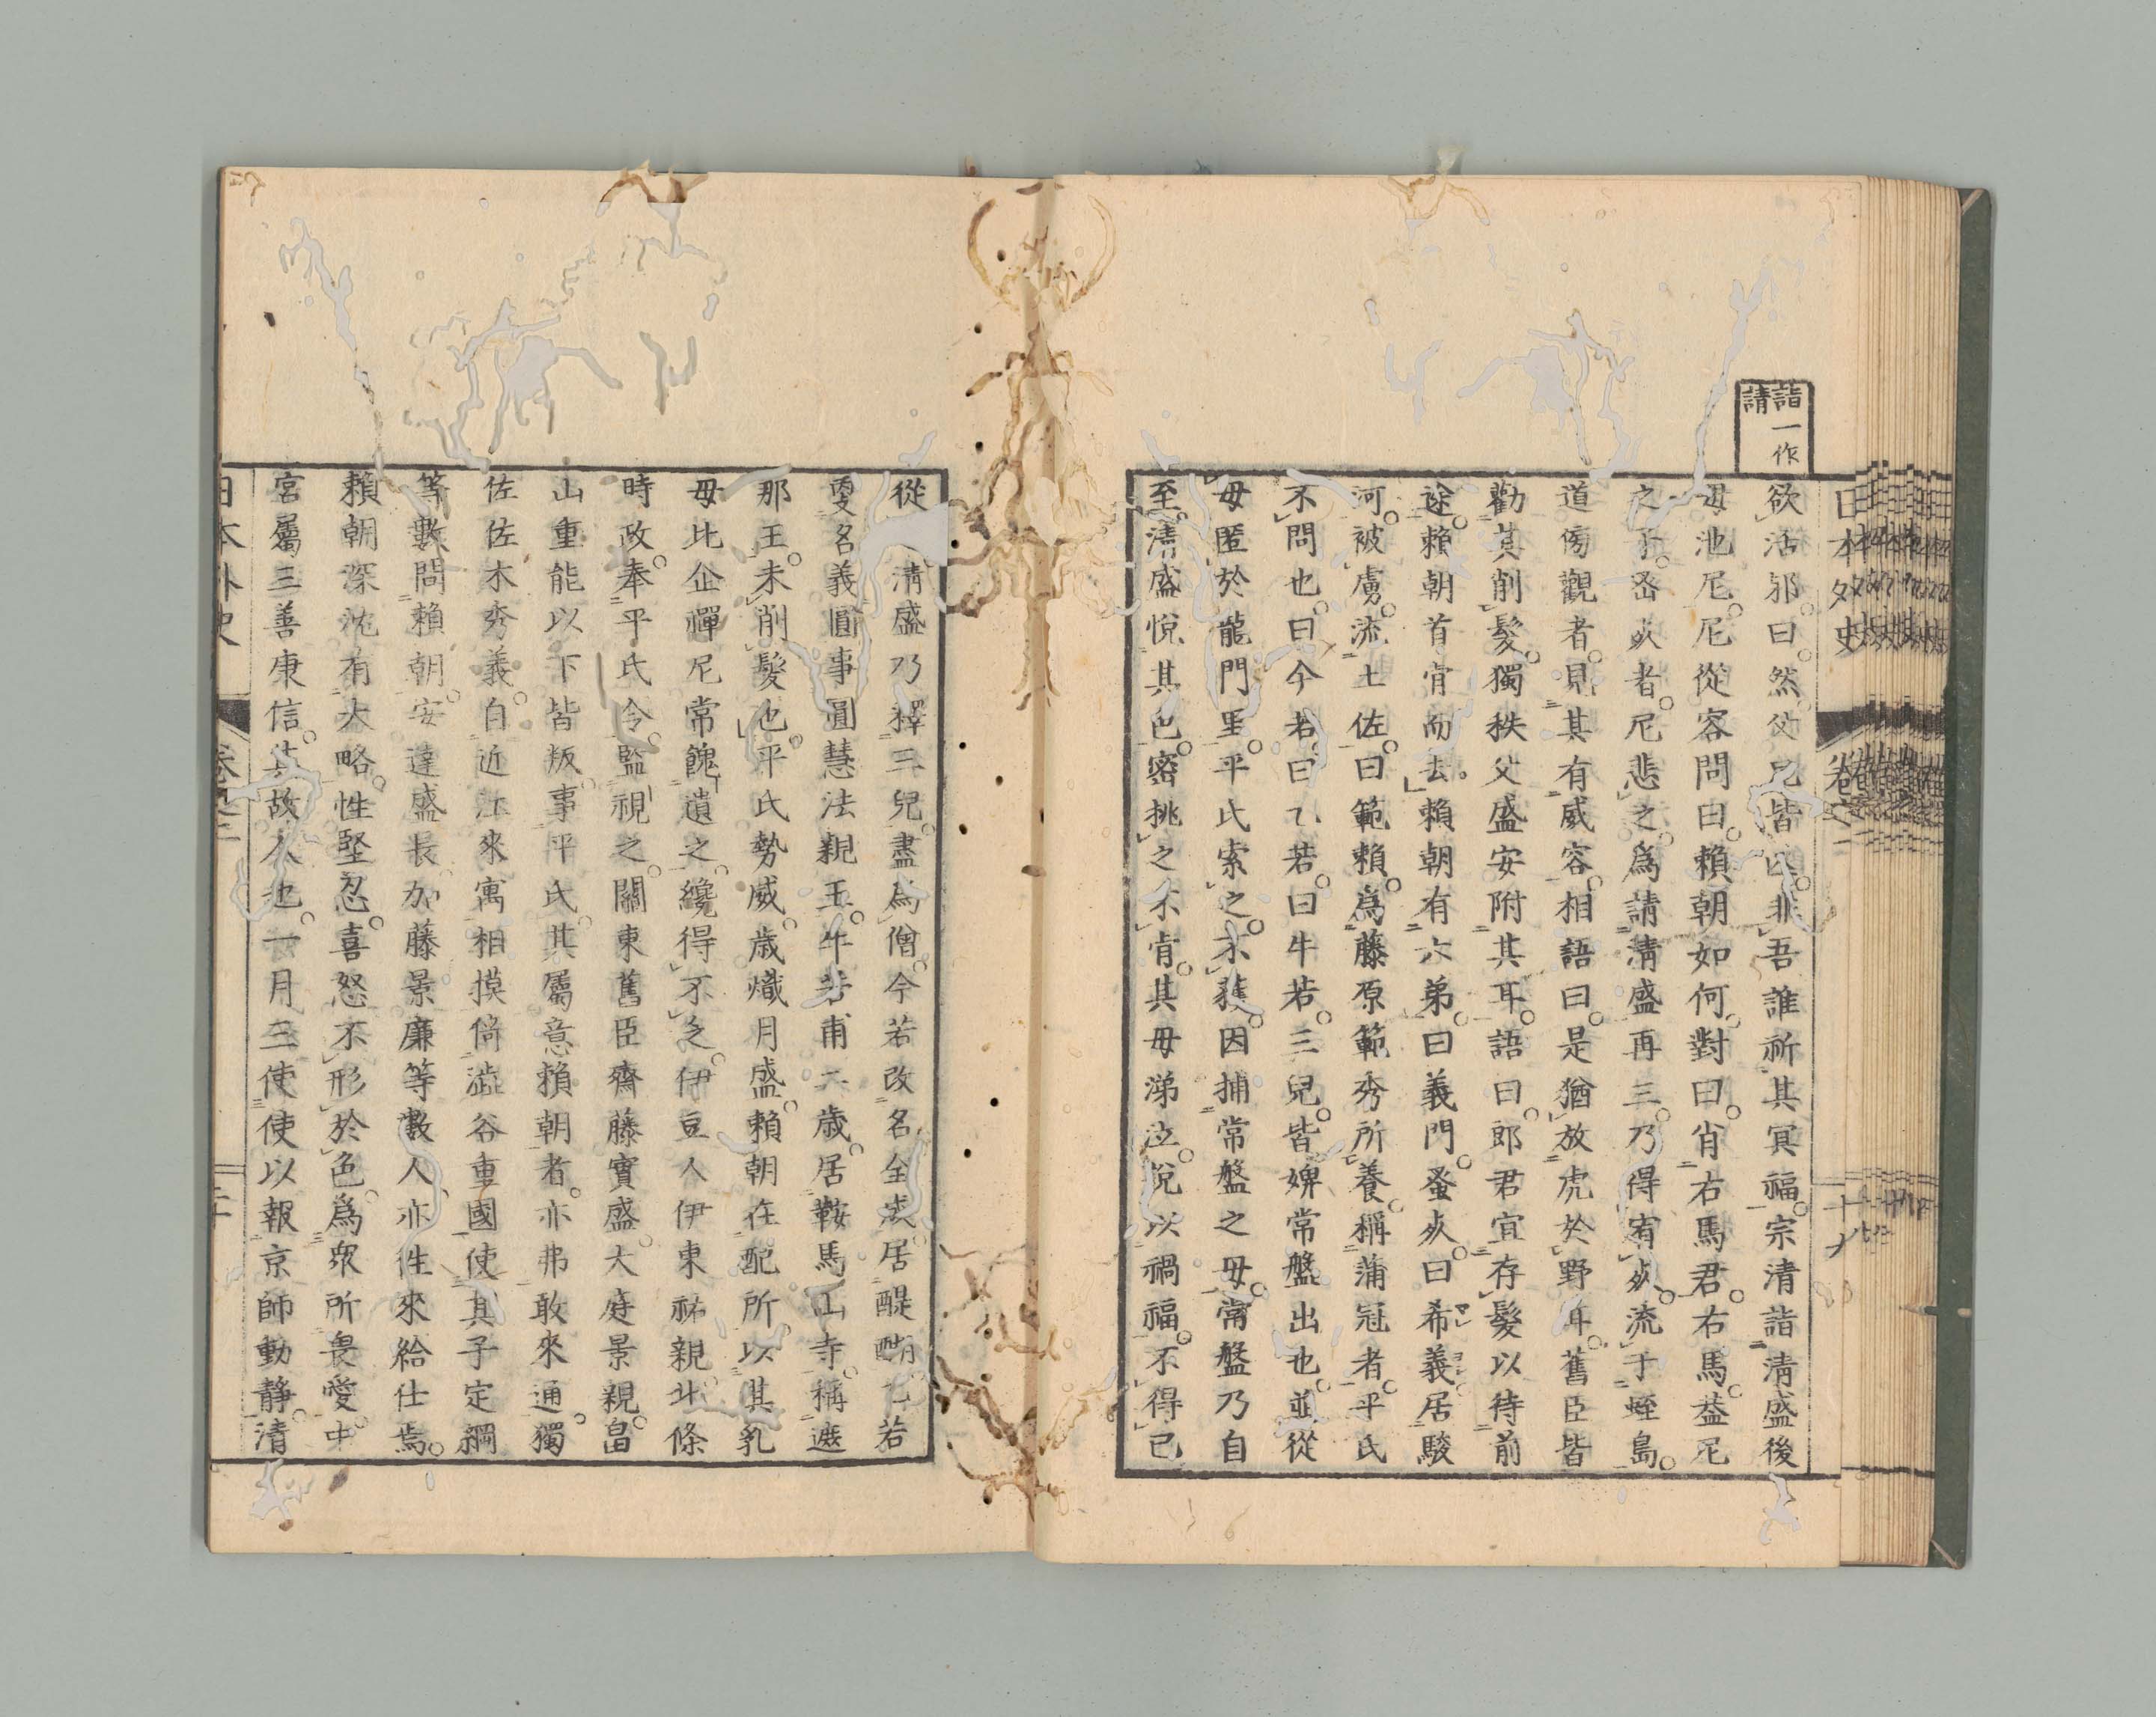 詣一作
請
欲活邪。曰。然。父兄皆死。非吾誰祈其冥福。宗清詣清盛後
母池尼。尼從容問曰。賴朝如何。對曰。肖右馬君。右馬蓋尼
之子。蚤死者。尼悲之。爲請清盛再三。乃得宥死。流于蛭島。
道傍觀者。見其有威容。相語曰。是猶放虎於野耳。舊臣皆
勸其削髮。獨秩父盛安附其耳。語曰。郎君宜存髮以待前
途。賴朝首肯而去。賴朝有六弟。曰義門。蚤死。曰希義。居駿
河。被虜。流土佐。曰範賴。爲藤原範秀所養。稱蒲冠者。平氏
不問也。曰今若。曰乙若。曰牛若。三兒。皆婢常盤出也。並從
母匿於龍門里。平氏索之。不獲。因捕常盤之母。常盤乃自
至。清盛悅其色。密挑之。不肯。其母涕泣。悅以禍福。不得已
從。清盛乃釋三兒。盡爲僧。今若改名全成。居醍醐。乙若
更名義圓。事圓慧法親王。牛若甫二歲。居鞍馬山寺。稱遮
那王。未削髮也。平氏勢威。歲熾月盛。賴朝在配所。以其乳
母比企禪尼常餽遺之。纔得不乏。伊豆人伊東祐親。北條
時政。奉平氏令。監視之。關東舊臣齋藤實盛。大庭景親。畠
山重能以下皆叛。事平氏。其屬意賴朝者。亦弗敢來通。獨
佐佐木秀義。自近江來寓相摸。倚澁谷重國。使其子定綱
等數問賴朝。安達盛長。加藤景廉等數人。亦往來給仕焉。
賴朝深沈有大略。性堅忍。喜怒不形於色。爲衆所畏愛。中
宮屬三善康信。其故人也。一月三使使以報京師動靜。清
日本外史
卷之二